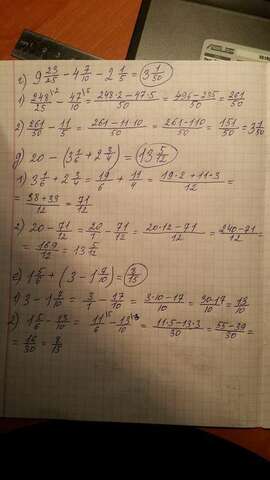 ASUS
г) 9 23/25 − 4 7/10 − 2 1/5 = 3 1/50
1) 248/25 \2 − 47/10 \5 = (248·2−47·5)/50 = (496−235)/50 = 261/50
2) 261/50 − 11/5 = (261−11·10)/50 = (261−110)/50 = 151/50 = 3 1/50
д) 20 − (3 1/6 + 2 3/4) = 13 5/12
1) 3 1/6 + 2 3/4 = 19/6 + 11/4 = (19·2+11·3)/12 =
= (38+33)/12 = 71/12
2) 20 − 71/12 = 20/1 − 71/12 = (20·12−71)/12 = (240−71)/12
= 169/12 = 13 5/12
е) 1 5/6 + (3 − 1 7/10) = 8/15
1) 3 − 1 7/10 = 3/1 − 17/10 = (3·10−17)/10 = (30·17)/10 = 13/10
2) 1 5/6 − 13/10 = 11/6 \5 − 13/10 \3 = (11·5−13·3)/30 = (55−39)/30 =
= 16/30 = 8/15